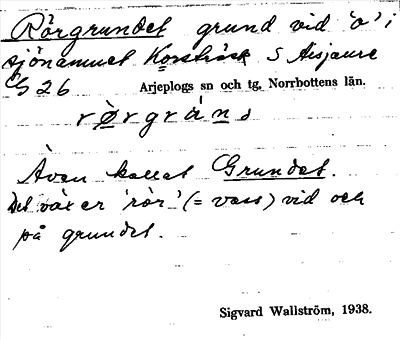 Rörgrundet grund vid 'o' i
sjönamnet Korsträsk S Aisjaure
G 26 Arjeplogs sn och tg, Norrbottens län.
rørgrán
Även kallat Grundet.
Det växer 'rör' (= vass) vid och
på grundet.
Sigvard Wallström, 1938.